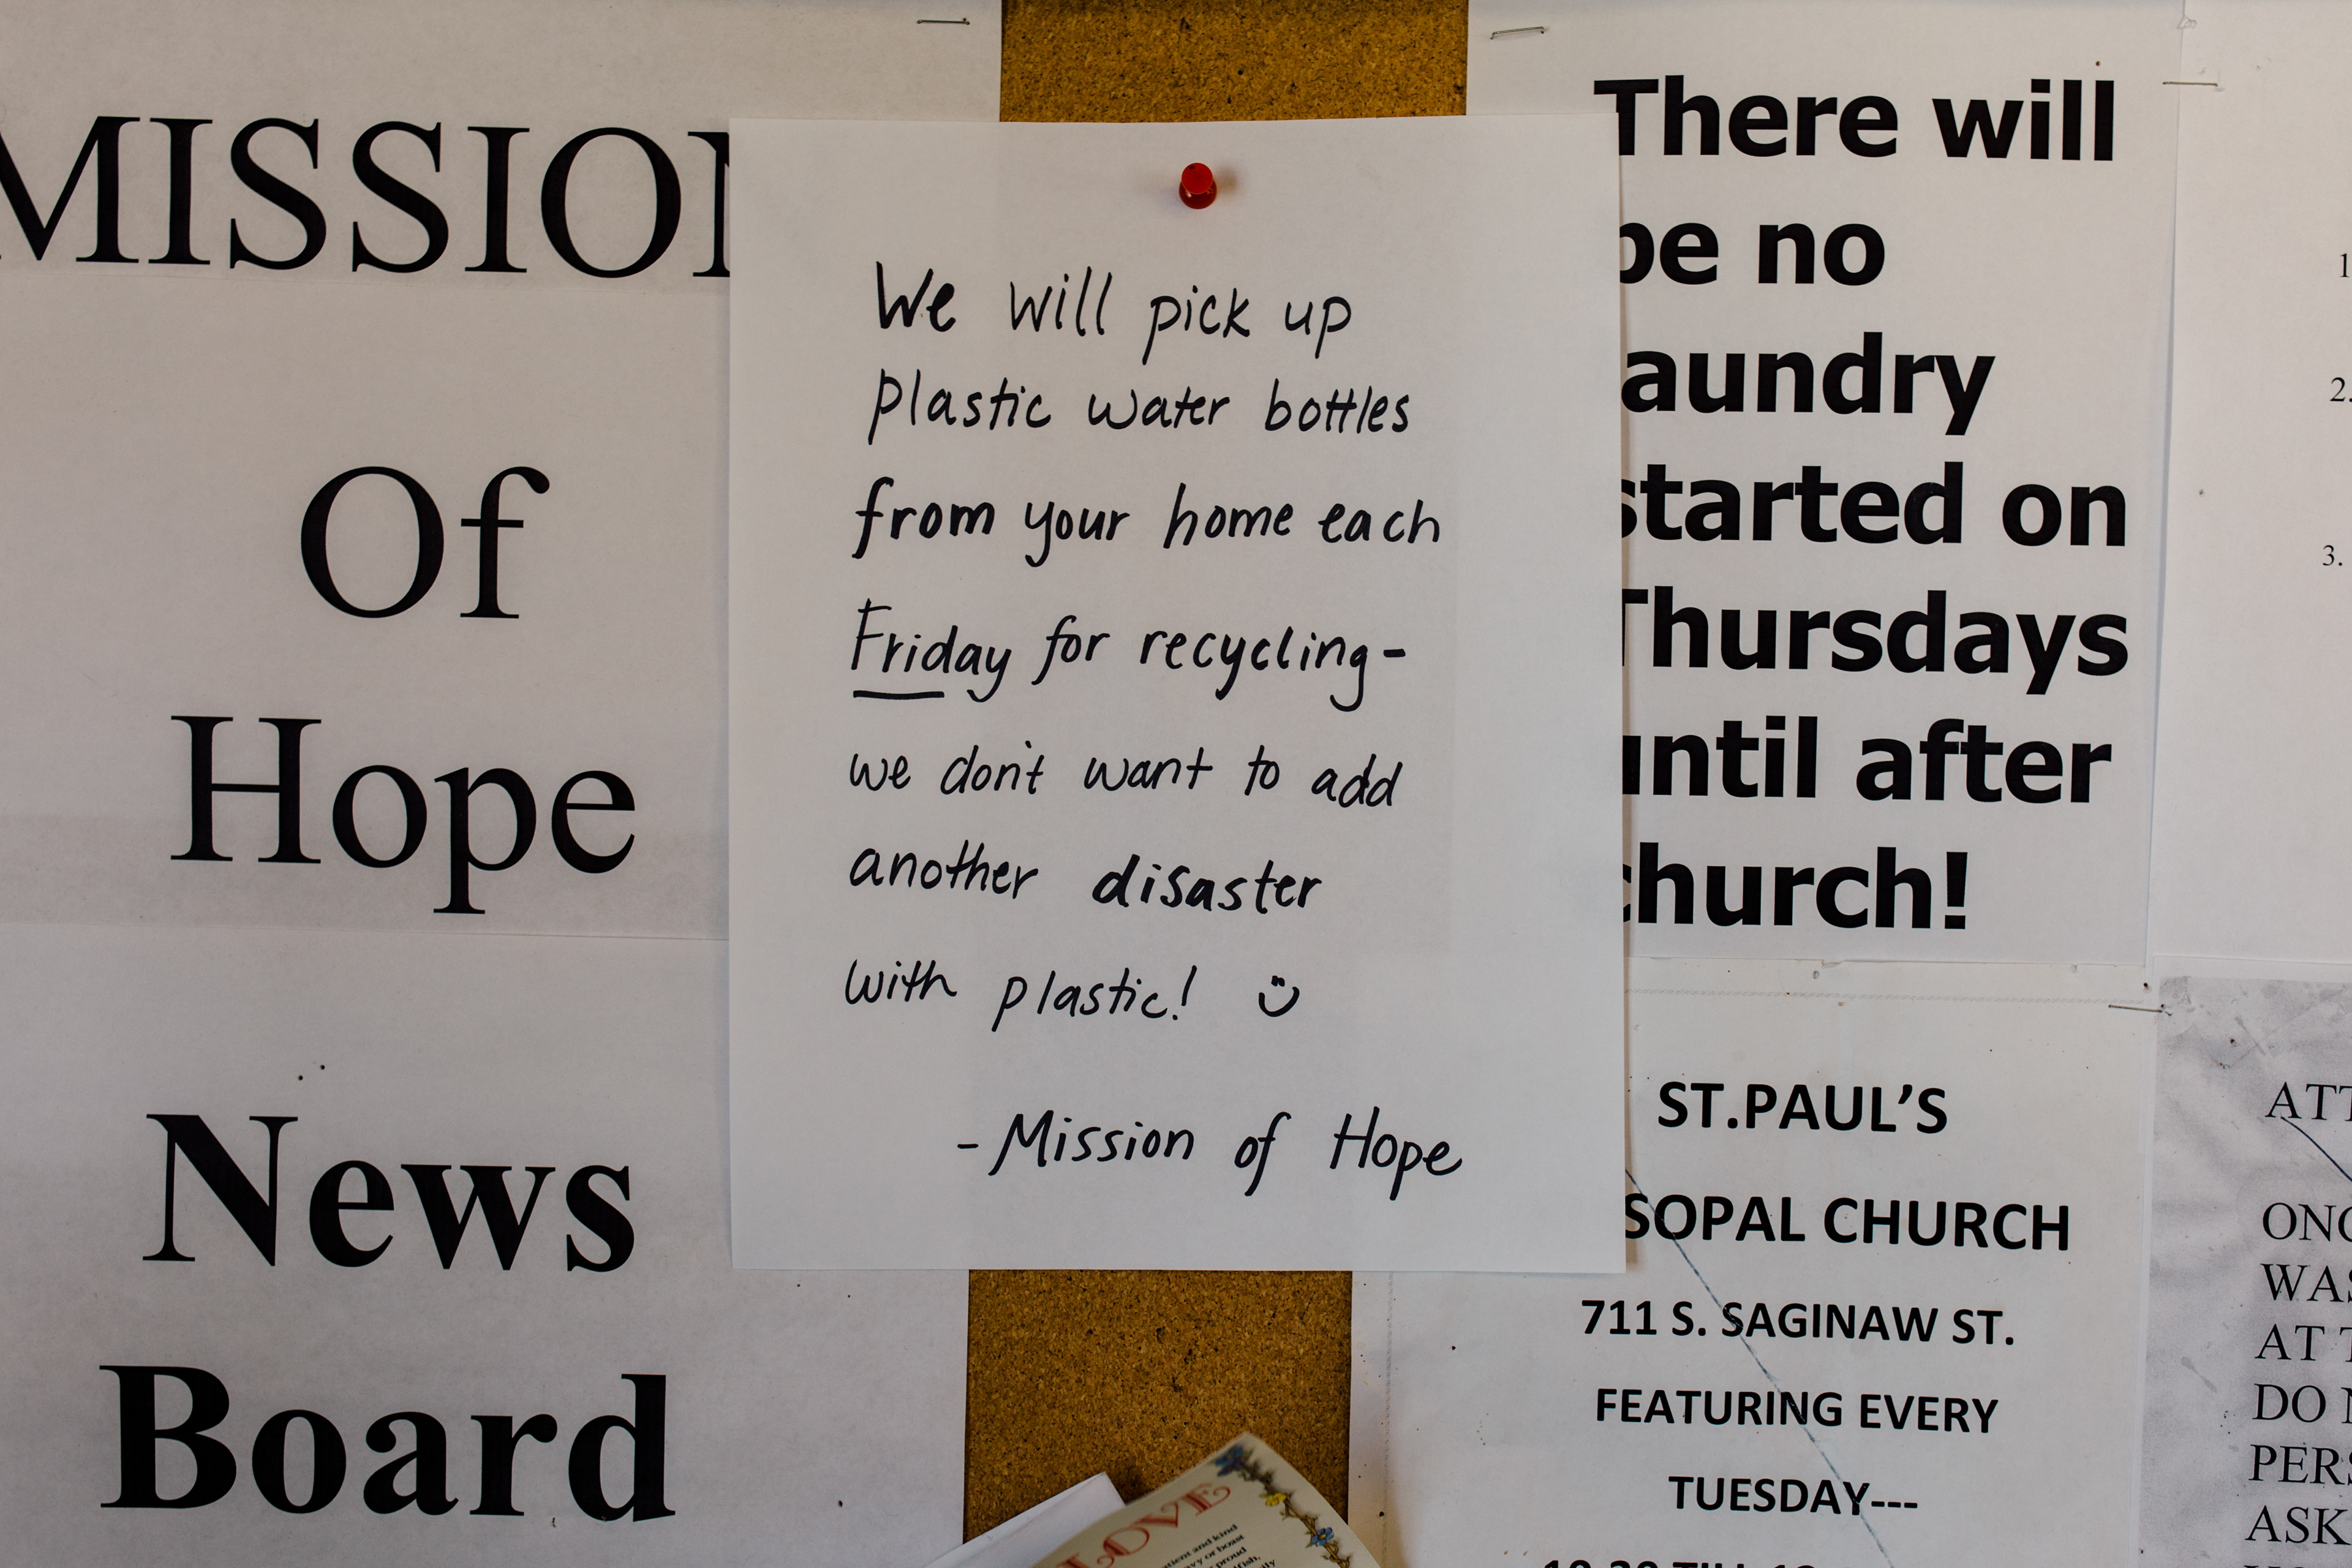 MISSION
Of
Hope
News
Board
We will pick up
plastic water bottles
from your home each
Friday for recycling-
we don't want to add
another disaster
with plastic! :)
- Mission of Hope
There will
be no
aundry
started on
Thursdays
until after
church!
ST.PAUL'S
SOPAL CHURCH
711 S. SAGINAW ST.
FEATURING EVERY
TUESDAY---
1
2.
3.
ATT
ONC
WAS
AT T
DO
PERS
ASK
LOVE